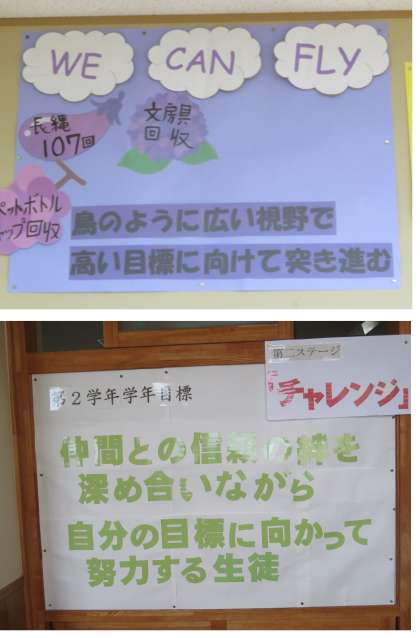 WE CAN FLY
長縄
107回
文房具
回収
ペットボトル
キャップ回収
鳥のように広い視野で
高い目標に向けて突き進む
第二ステージ
「チャレンジ」
第2学年学年目標
仲間との信頼の絆を
深め合いながら
自分の目標に向かって
努力する生徒